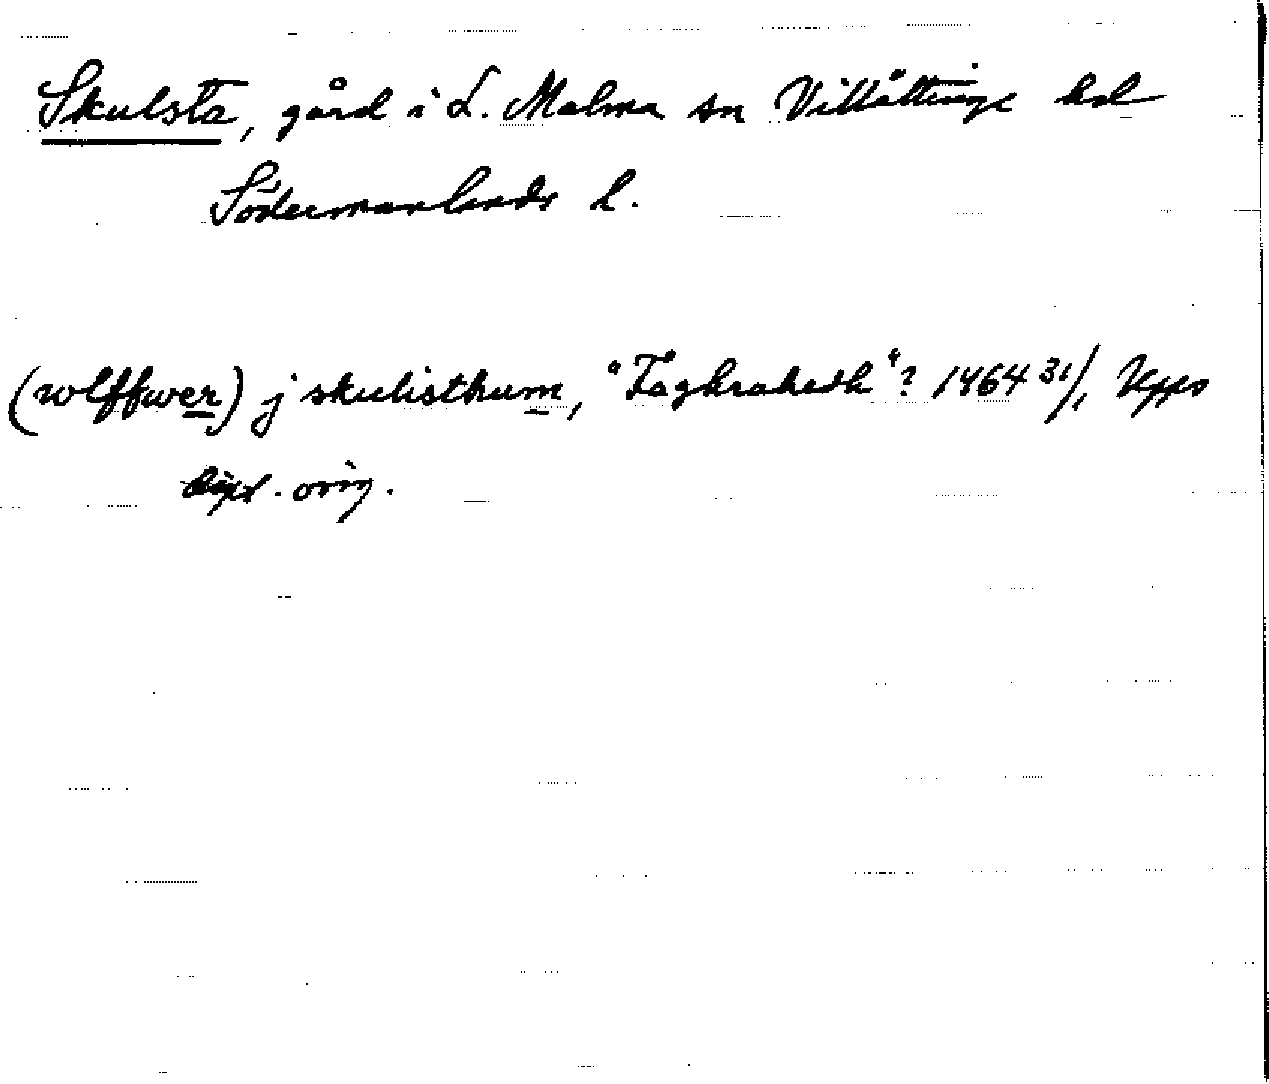 Skulsta, gård i L. Malma sn Villåttinge hd
Södermanlands l.
(wlffwer) j skulisthum, "Faghrahedh"? 1464 31/1, Upps
dipl. orig.